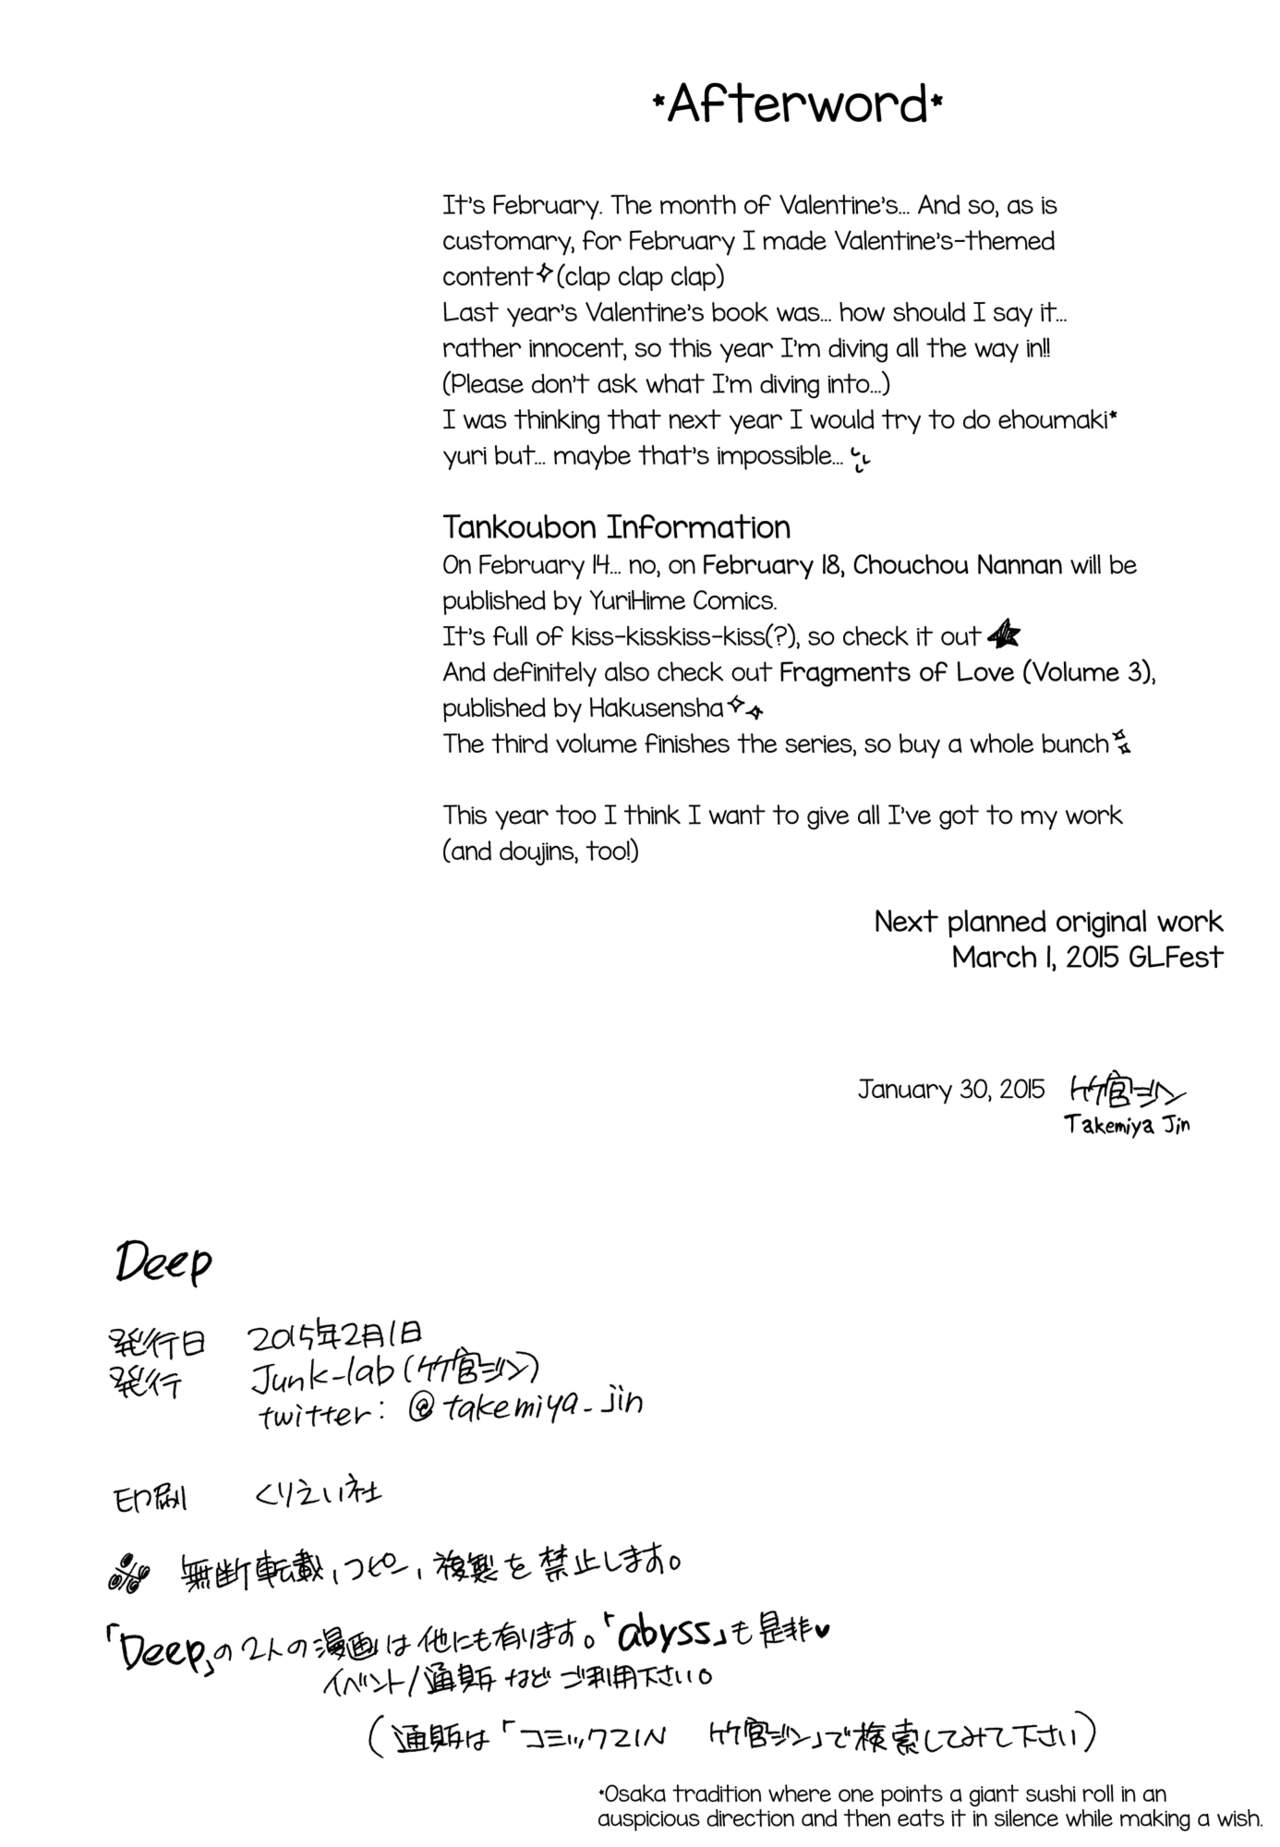 *Afterword*
It's February. The month of Valentine's... And so, as is
customary, for February I made Valentine's-themed
content✧(clap clap clap)
Last year's Valentine's book was... how should I say it...
rather innocent, so this year I'm diving all the way in!!
(Please don't ask what I'm diving into...)
I was thinking that next year I would try to do ehoumaki*
yuri but... maybe that's impossible...
Tankoubon Information
On February 14... no, on February 18, Chouchou Nannan will be
published by YuriHime Comics.
It's full of kiss-kisskiss-kiss(?), so check it out★
And definitely also check out Fragments of Love (Volume 3),
published by Hakusensha✧✧
The third volume finishes the series, so buy a whole bunch✧✧
This year too I think I want to give all I've got to my work
(and doujins, too!)
Next planned original work
March 1, 2015 GLFest
January 30, 2015 竹宮ジン
Takemiya Jin
Deep
発行日 2015年2月1日
発行 Junk-lab(竹宮ジン)
twitter: @takemiya_jin
印刷 くりえい社
※ 無断転載、コピー、複製を禁止します。
「Deep」の2人の漫画は他にも有ります。「abyss」も是非♥
イベント/通販などご利用下さい。
(通販は「コミックZIN 竹宮ジン」で検索してみて下さい)
*Osaka tradition where one points a giant sushi roll in an
auspicious direction and then eats it in silence while making a wish.